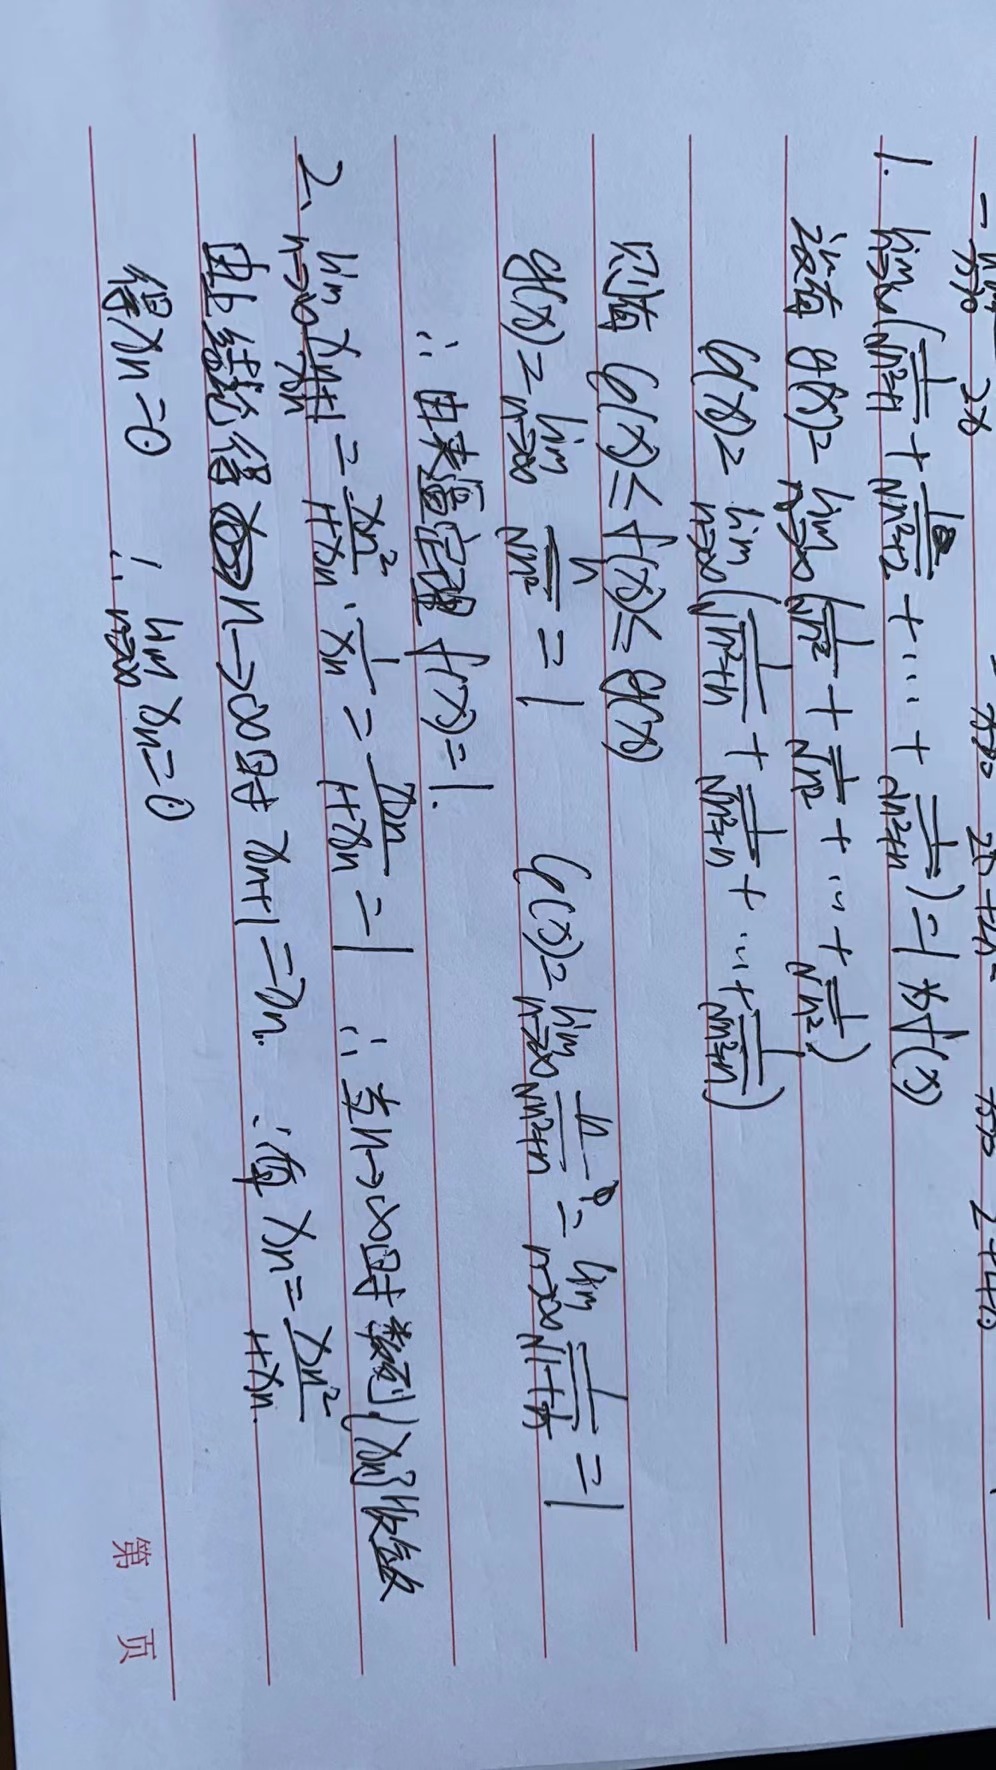 1. lim n→∞ (1/√(n²+1) + 1/√(n²+2) + ... + 1/√(n²+n)) = 1 为 f(x)
设有 g(x) = lim n→∞ (1/√n² + 1/√n² + ... + 1/√n²)
φ(x) = lim n→∞ (1/√(n²+n) + 1/√(n²+n) + ... + 1/√(n²+n))
则有 φ(x) ≤ f(x) ≤ g(x)
g(x) = lim n→∞ n/√n² = 1 φ(x) = lim n→∞ n/√(n²+n) = lim n→∞ 1/√(1+1/n) = 1
∴ 由夹逼定理 f(x) = 1.
2、lim n→∞ xn+1/xn = xn²/(1+xn) · 1/xn = xn/(1+xn) = 1 ∴ 当n→∞时 数列{xn}收敛
由上结论得 n→∞时 xn+1 = xn. ∴有 xn = xn²/(1+xn).
得 xn = 0 ∴ lim n→∞ xn = 0
第 页